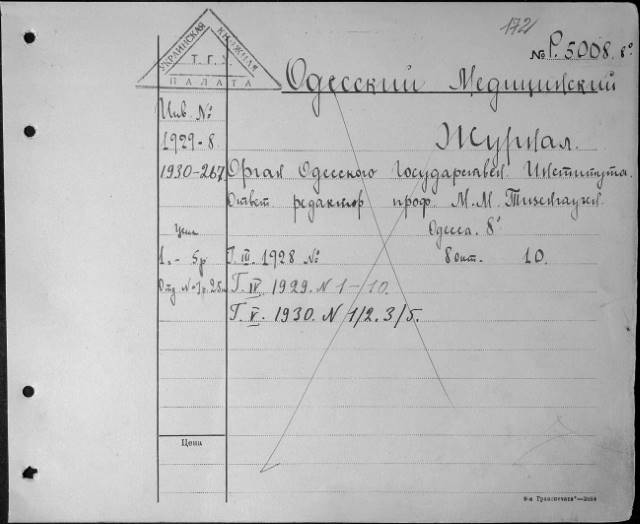 172
№ Р. 5008. 8°
УКРАИНСКАЯ КНИЖНАЯ
Т. Г.
ПАЛАТА
Одесский Медицинский
Инв. №
Журнал.
1929-8
1930-267 Орган Одесского Государствен. Института.
Ответ. редактор проф. М. М.
Цена Одесса. 8°
1.- 5р Г. III. 1928 № 8 окт. 10.
Отд. № 1р. 25к Г. IV. 1929. N 1-10.
Г. V. 1930. N 1/2. 3/5.
Цена